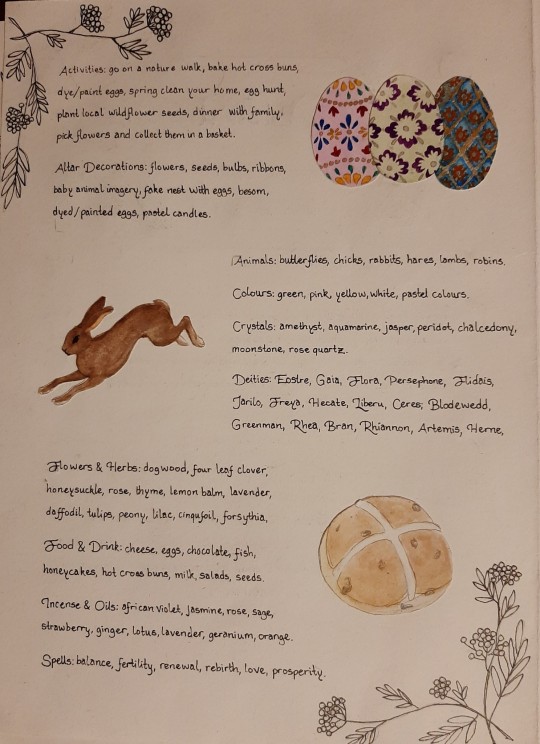 Activities: go on a nature walk, bake hot cross buns,
dye/paint eggs, spring clean your home, egg hunt,
plant local wildflower seeds, dinner with family,
pick flowers and collect them in a basket.
Altar Decorations: flowers, seeds, bulbs, ribbons,
baby animal imagery, fake nest with eggs, besom,
dyed/painted eggs, pastel candles.
Animals: butterflies, chicks, rabbits, hares, lambs, robins.
Colours: green, pink, yellow, white, pastel colours.
Crystals: amethyst, aquamarine, jasper, peridot, chalcedony,
moonstone, rose quartz.
Deities: Eostre, Gaia, Flora, Persephone, Flidais,
Jarilo, Freya, Hecate, Liberu, Ceres, Blodewedd,
Greenman, Rhea, Bran, Rhiannon, Artemis, Herne,
Flowers & Herbs: dogwood, four leaf clover,
honeysuckle, rose, thyme, lemon balm, lavender,
daffodil, tulips, peony, lilac, cinqufoil, forsythia,
Food & Drink: cheese, eggs, chocolate, fish,
honeycakes, hot cross buns, milk, salads, seeds.
Incense & Oils: african violet, jasmine, rose, sage,
strawberry, ginger, lotus, lavender, geranium, orange.
Spells: balance, fertility, renewal, rebirth, love, prosperity.